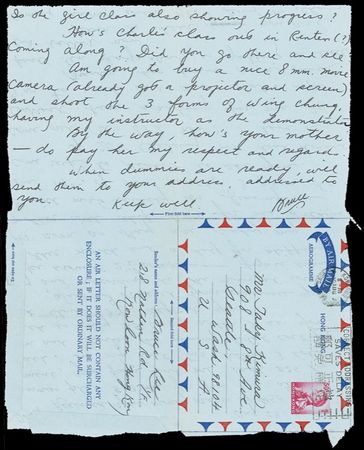 Is the girl class also showing progress?
How's Charlie's class out in Renten (?)
Coming along? Did you go there and see
Am going to buy a nice 8 mm. movie
Camera (already got a projector and screen)
and shoot the 3 forms of Wing Chung,
having my instructor as the demonstrator
By the way how's your mother
— do pay her my respect and regard.
When dummies are ready, will
send them to your address addressed to
you.
Keep well
Bruce
First fold here
To open cut here
AN AIR LETTER SHOULD NOT CONTAIN ANY
ENCLOSURE; IF IT DOES IT WILL BE SURCHARGED
OR SENT BY ORDINARY MAIL.
Sender's name and address:
Bruce Lee
218 Nathan Rd.
Kowloon, Hong Kong
Second fold here
BY AIR MAIL
AEROGRAMME
HONG KONG
Mr. Taky Kimura
908 S 8th Ave
Seattle
Wash 98104
U S A
CORRECT ADDRESSING
SAVES DELAY